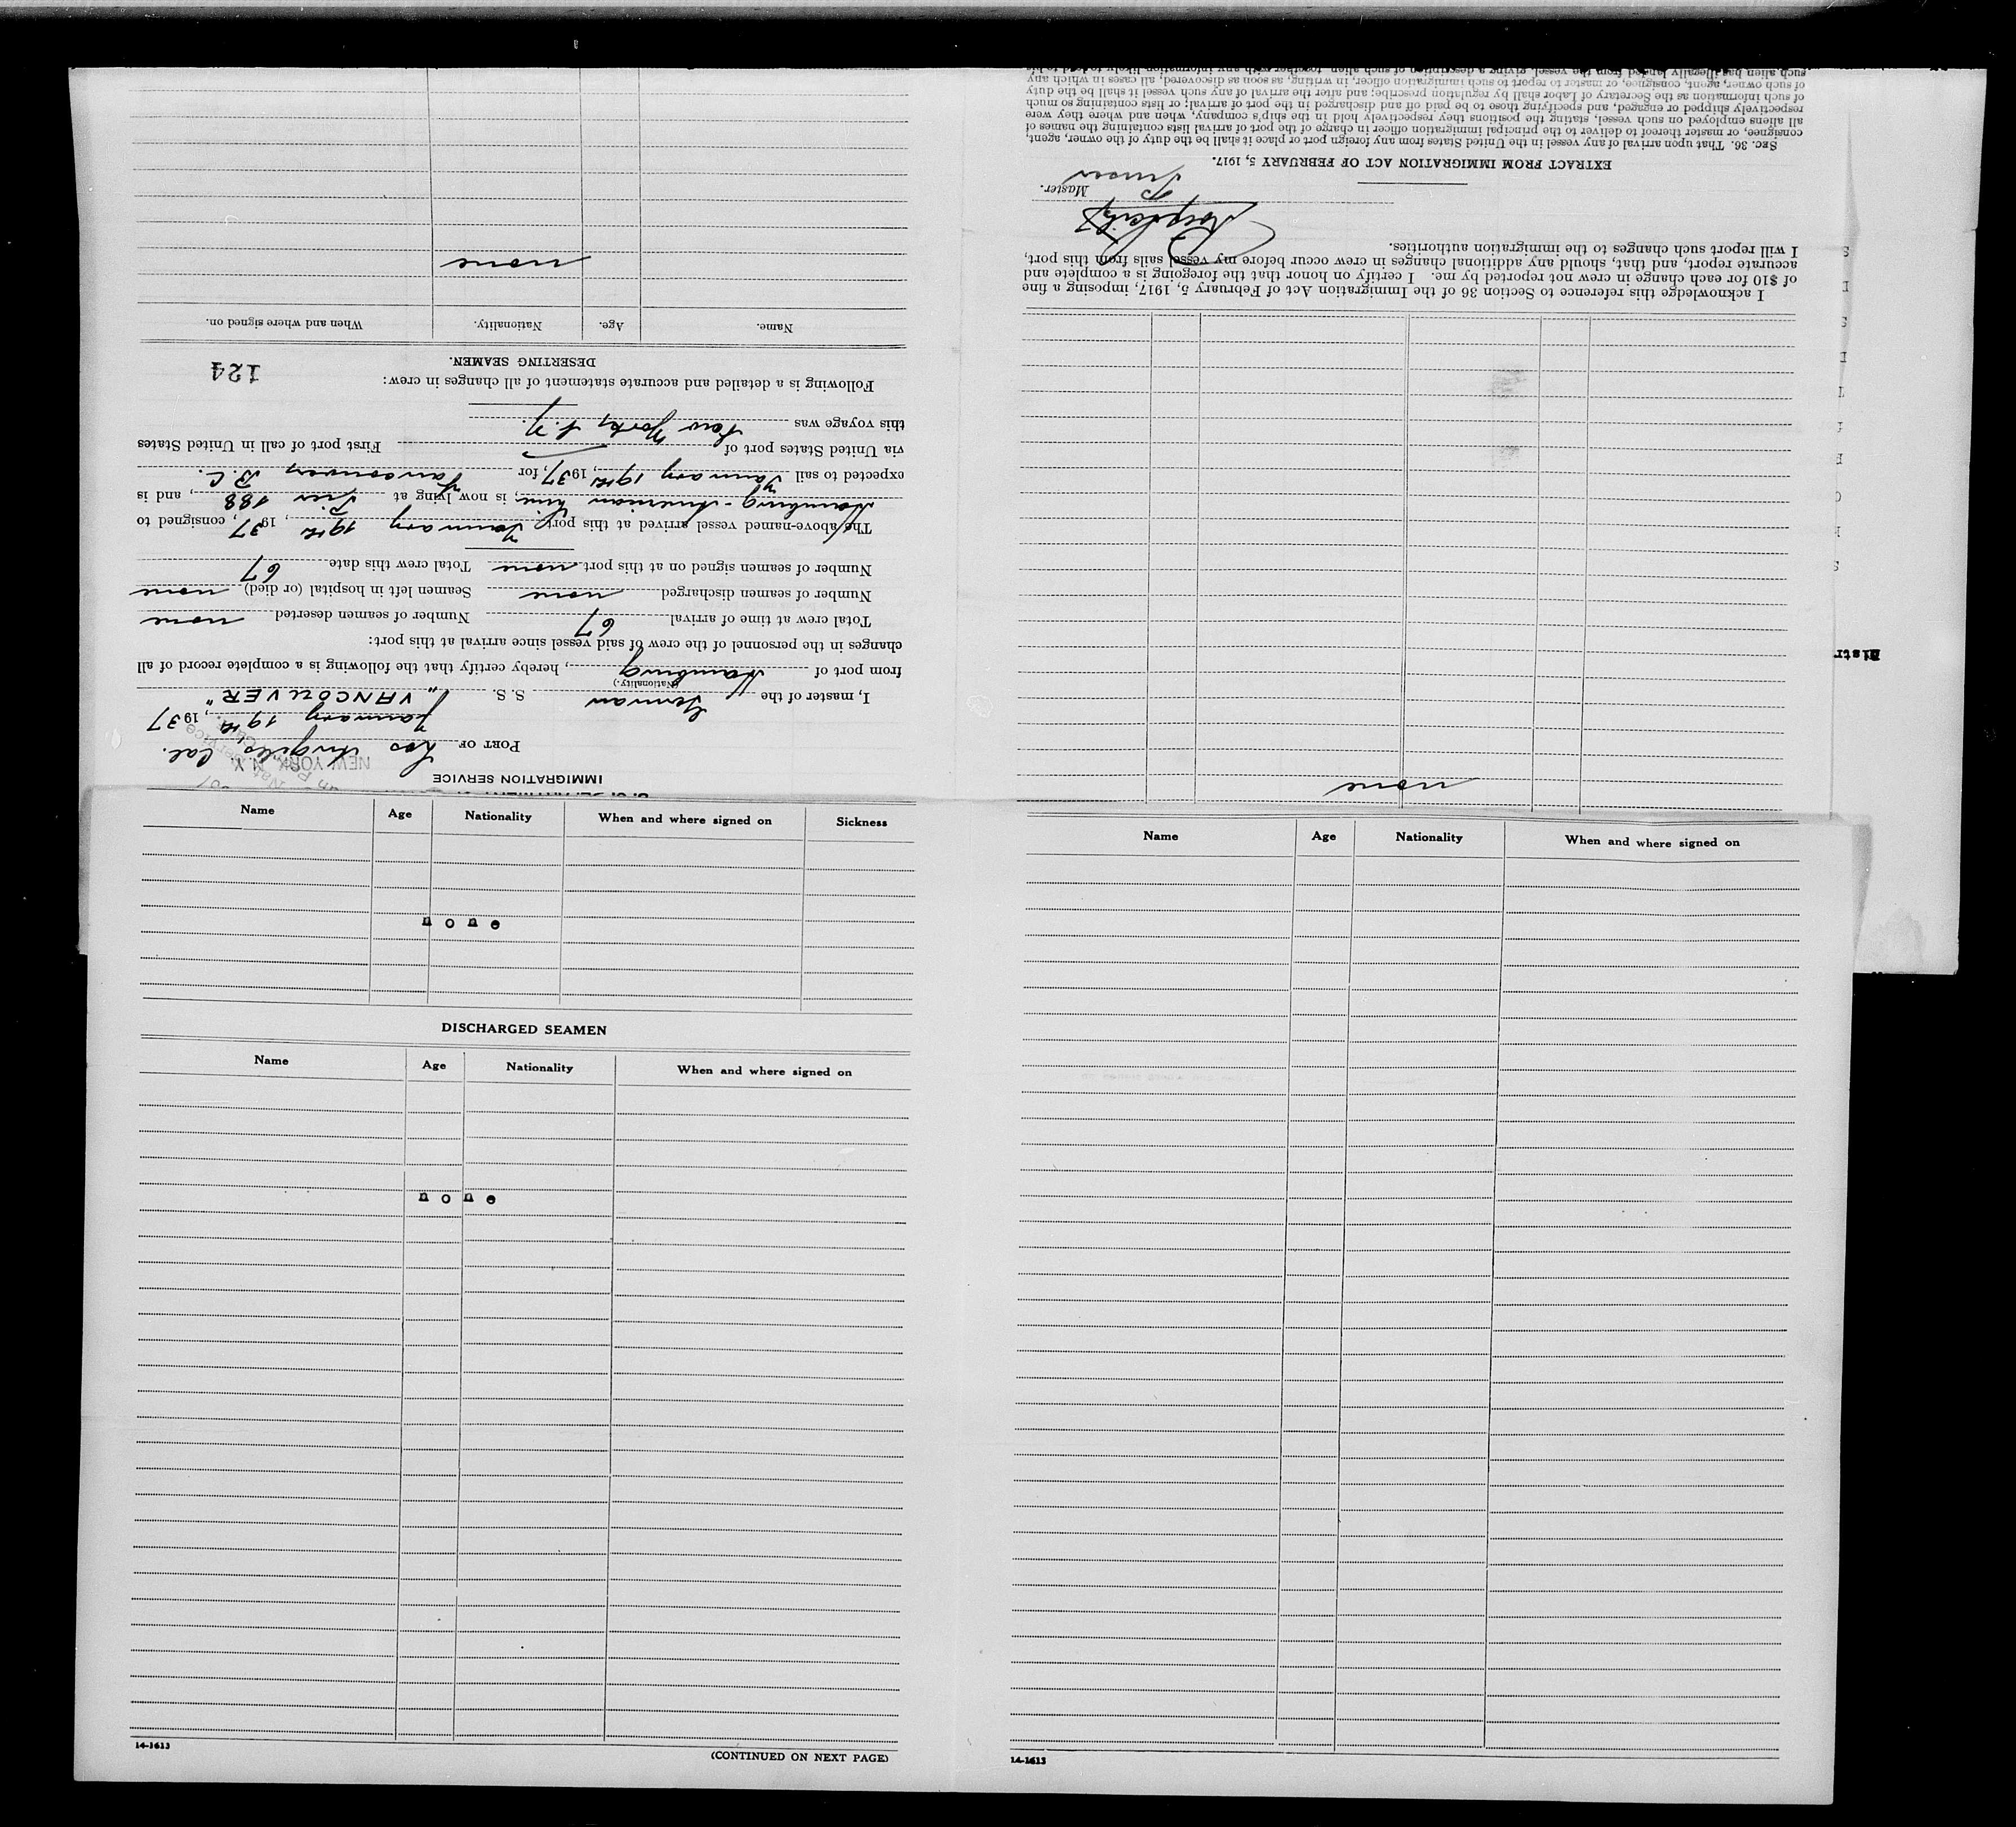 IMMIGRATION SERVICE
NEW YORK, N.Y.
PORT OF Los Angeles, Cal.
January 19th, 1937
I, master of the German S. S. "VANCOUVER"
(Nationality.)
from port of Hamburg, hereby certify that the following is a complete record of all
changes in the personnel of the crew of said vessel since arrival at this port:
Total crew at time of arrival 67 Number of seamen deserted none
Number of seamen discharged none Seamen left in hospital (or died) none
Number of seamen signed on at this port none Total crew this date 67
The above-named vessel arrived at this port January 19th, 1937, consigned to
Hamburg-American Line, is now lying at Pier 188, and is
expected to sail January 19th, 1937, for Vancouver B.C.
via United States port of First port of call in United States
this voyage was New York,
Following is a detailed and accurate statement of all changes in crew:
124
DESERTING SEAMEN.
Name. Age. Nationality. When and where signed on.
none
none
I acknowledge this reference to Section 36 of the Immigration Act of February 5, 1917, imposing a fine
of $10 for each change in crew not reported by me. I certify on honor that the foregoing is a complete and
accurate report, and that, should any additional changes in crew occur before my vessel sails from this port,
I will report such changes to the immigration authorities.
Master.
Purser
EXTRACT FROM IMMIGRATION ACT OF FEBRUARY 5, 1917.
SEC. 36. That upon arrival of any vessel in the United States from any foreign port or place it shall be the duty of the owner, agent,
consignee, or master thereof to deliver to the principal immigration officer in charge of the port of arrival lists containing the names of
all aliens employed on such vessel, stating the positions they respectively hold in the ship's company, when and where they were
respectively shipped or engaged, and specifying those to be paid off and discharged in the port of arrival; or lists containing so much
of such information as the Secretary of Labor shall by regulation prescribe; and after the arrival of any such vessel it shall be the duty
of such owner, agent, consignee, or master to report to such immigration officer, in writing, as soon as discovered, all cases in which any
such alien has illegally landed from the vessel, giving a description of such alien, together with any information likely to lead to his
Distr
Name Age Nationality When and where signed on Sickness
none
DISCHARGED SEAMEN
Name Age Nationality When and where signed on
none
14-1613
(CONTINUED ON NEXT PAGE)
Name Age Nationality When and where signed on
14-1613